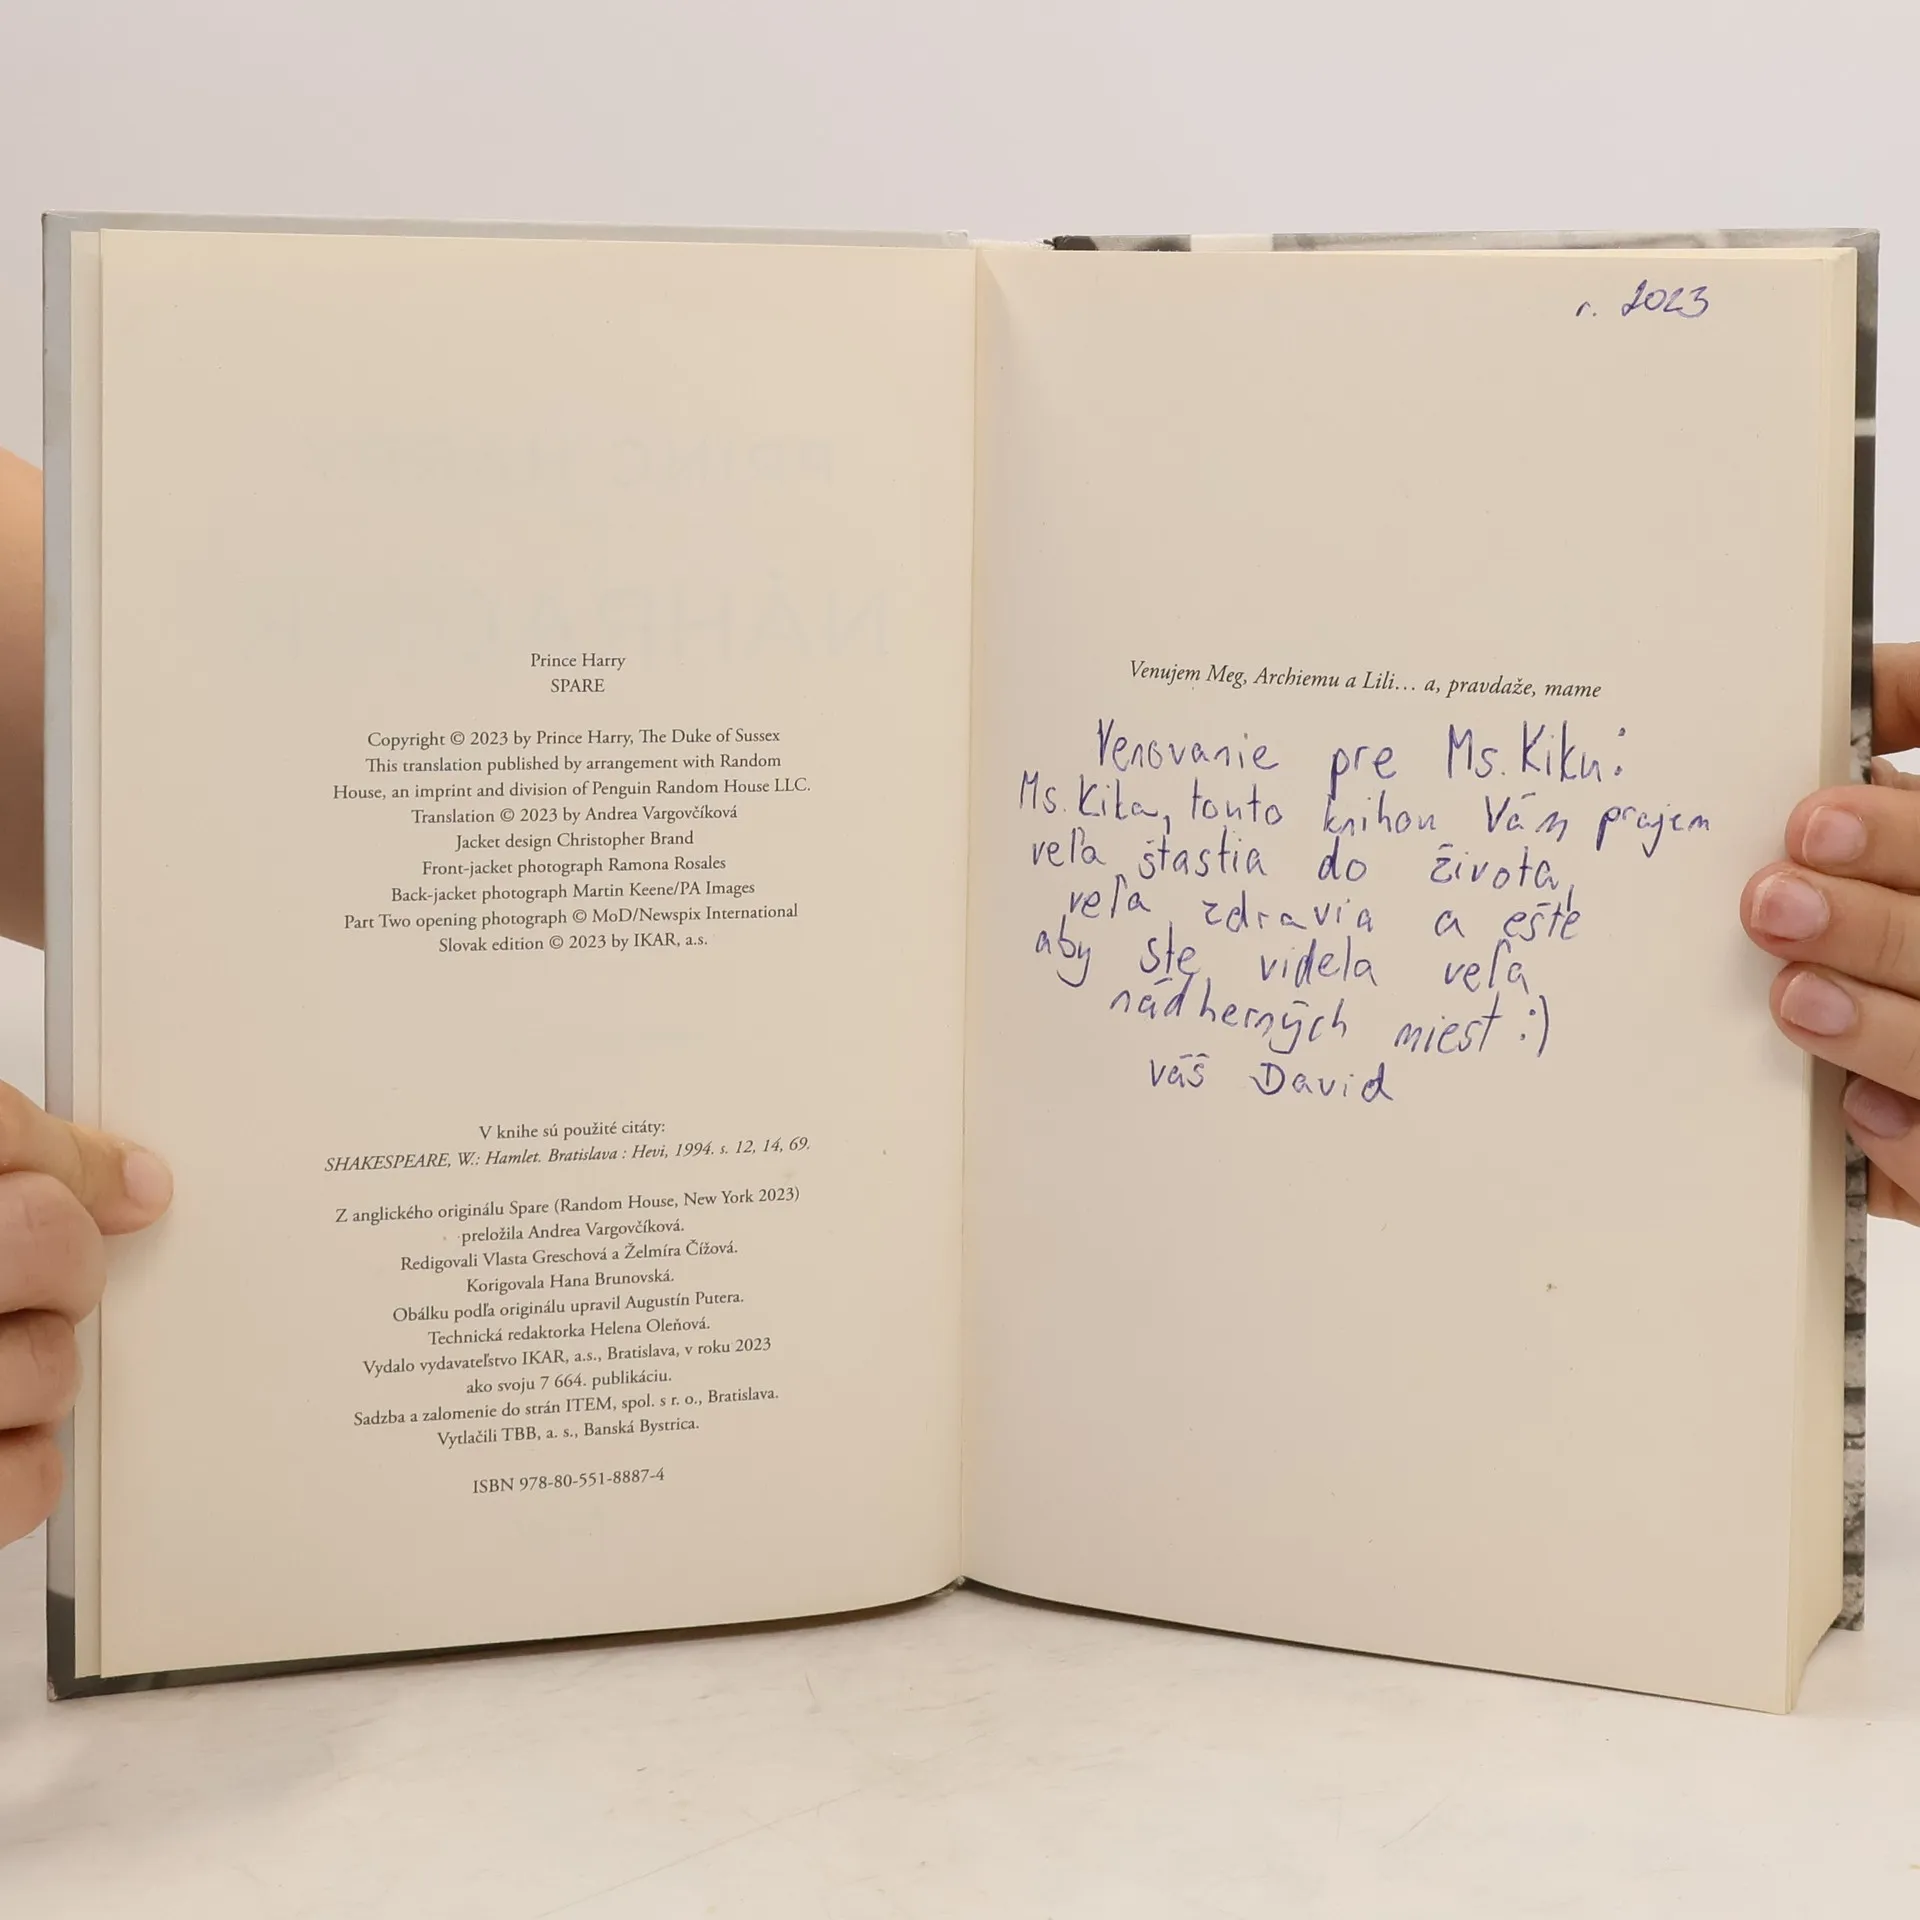 Prince Harry
SPARE
Copyright © 2023 by Prince Harry, The Duke of Sussex
This translation published by arrangement with Random
House, an imprint and division of Penguin Random House LLC.
Translation © 2023 by Andrea Vargovčíková
Jacket design Christopher Brand
Front-jacket photograph Ramona Rosales
Back-jacket photograph Martin Keene/PA Images
Part Two opening photograph © MoD/Newspix International
Slovak edition © 2023 by IKAR, a.s.
V knihe sú použité citáty:
SHAKESPEARE, W.: Hamlet. Bratislava : Hevi, 1994. s. 12, 14, 69.
Z anglického originálu Spare (Random House, New York 2023)
preložila Andrea Vargovčíková.
Redigovali Vlasta Greschová a Želmíra Čížová.
Korigovala Hana Brunovská.
Obálku podľa originálu upravil Augustín Putera.
Technická redaktorka Helena Oleňová.
Vydalo vydavateľstvo IKAR, a.s., Bratislava, v roku 2023
ako svoju 7 664. publikáciu.
Sadzba a zalomenie do strán ITEM, spol. s r. o., Bratislava.
Vytlačili TBB, a. s., Banská Bystrica.
ISBN 978-80-551-8887-4
r. 2023
Venujem Meg, Archiemu a Lili… a, pravdaže, mame
Venovanie pre Ms. Kiku:
Ms. Kika, touto knihou Vám prajem
veľa štastia do života,
veľa zdravia a ešte
aby ste videla veľa
nádherných miest :)
váš David